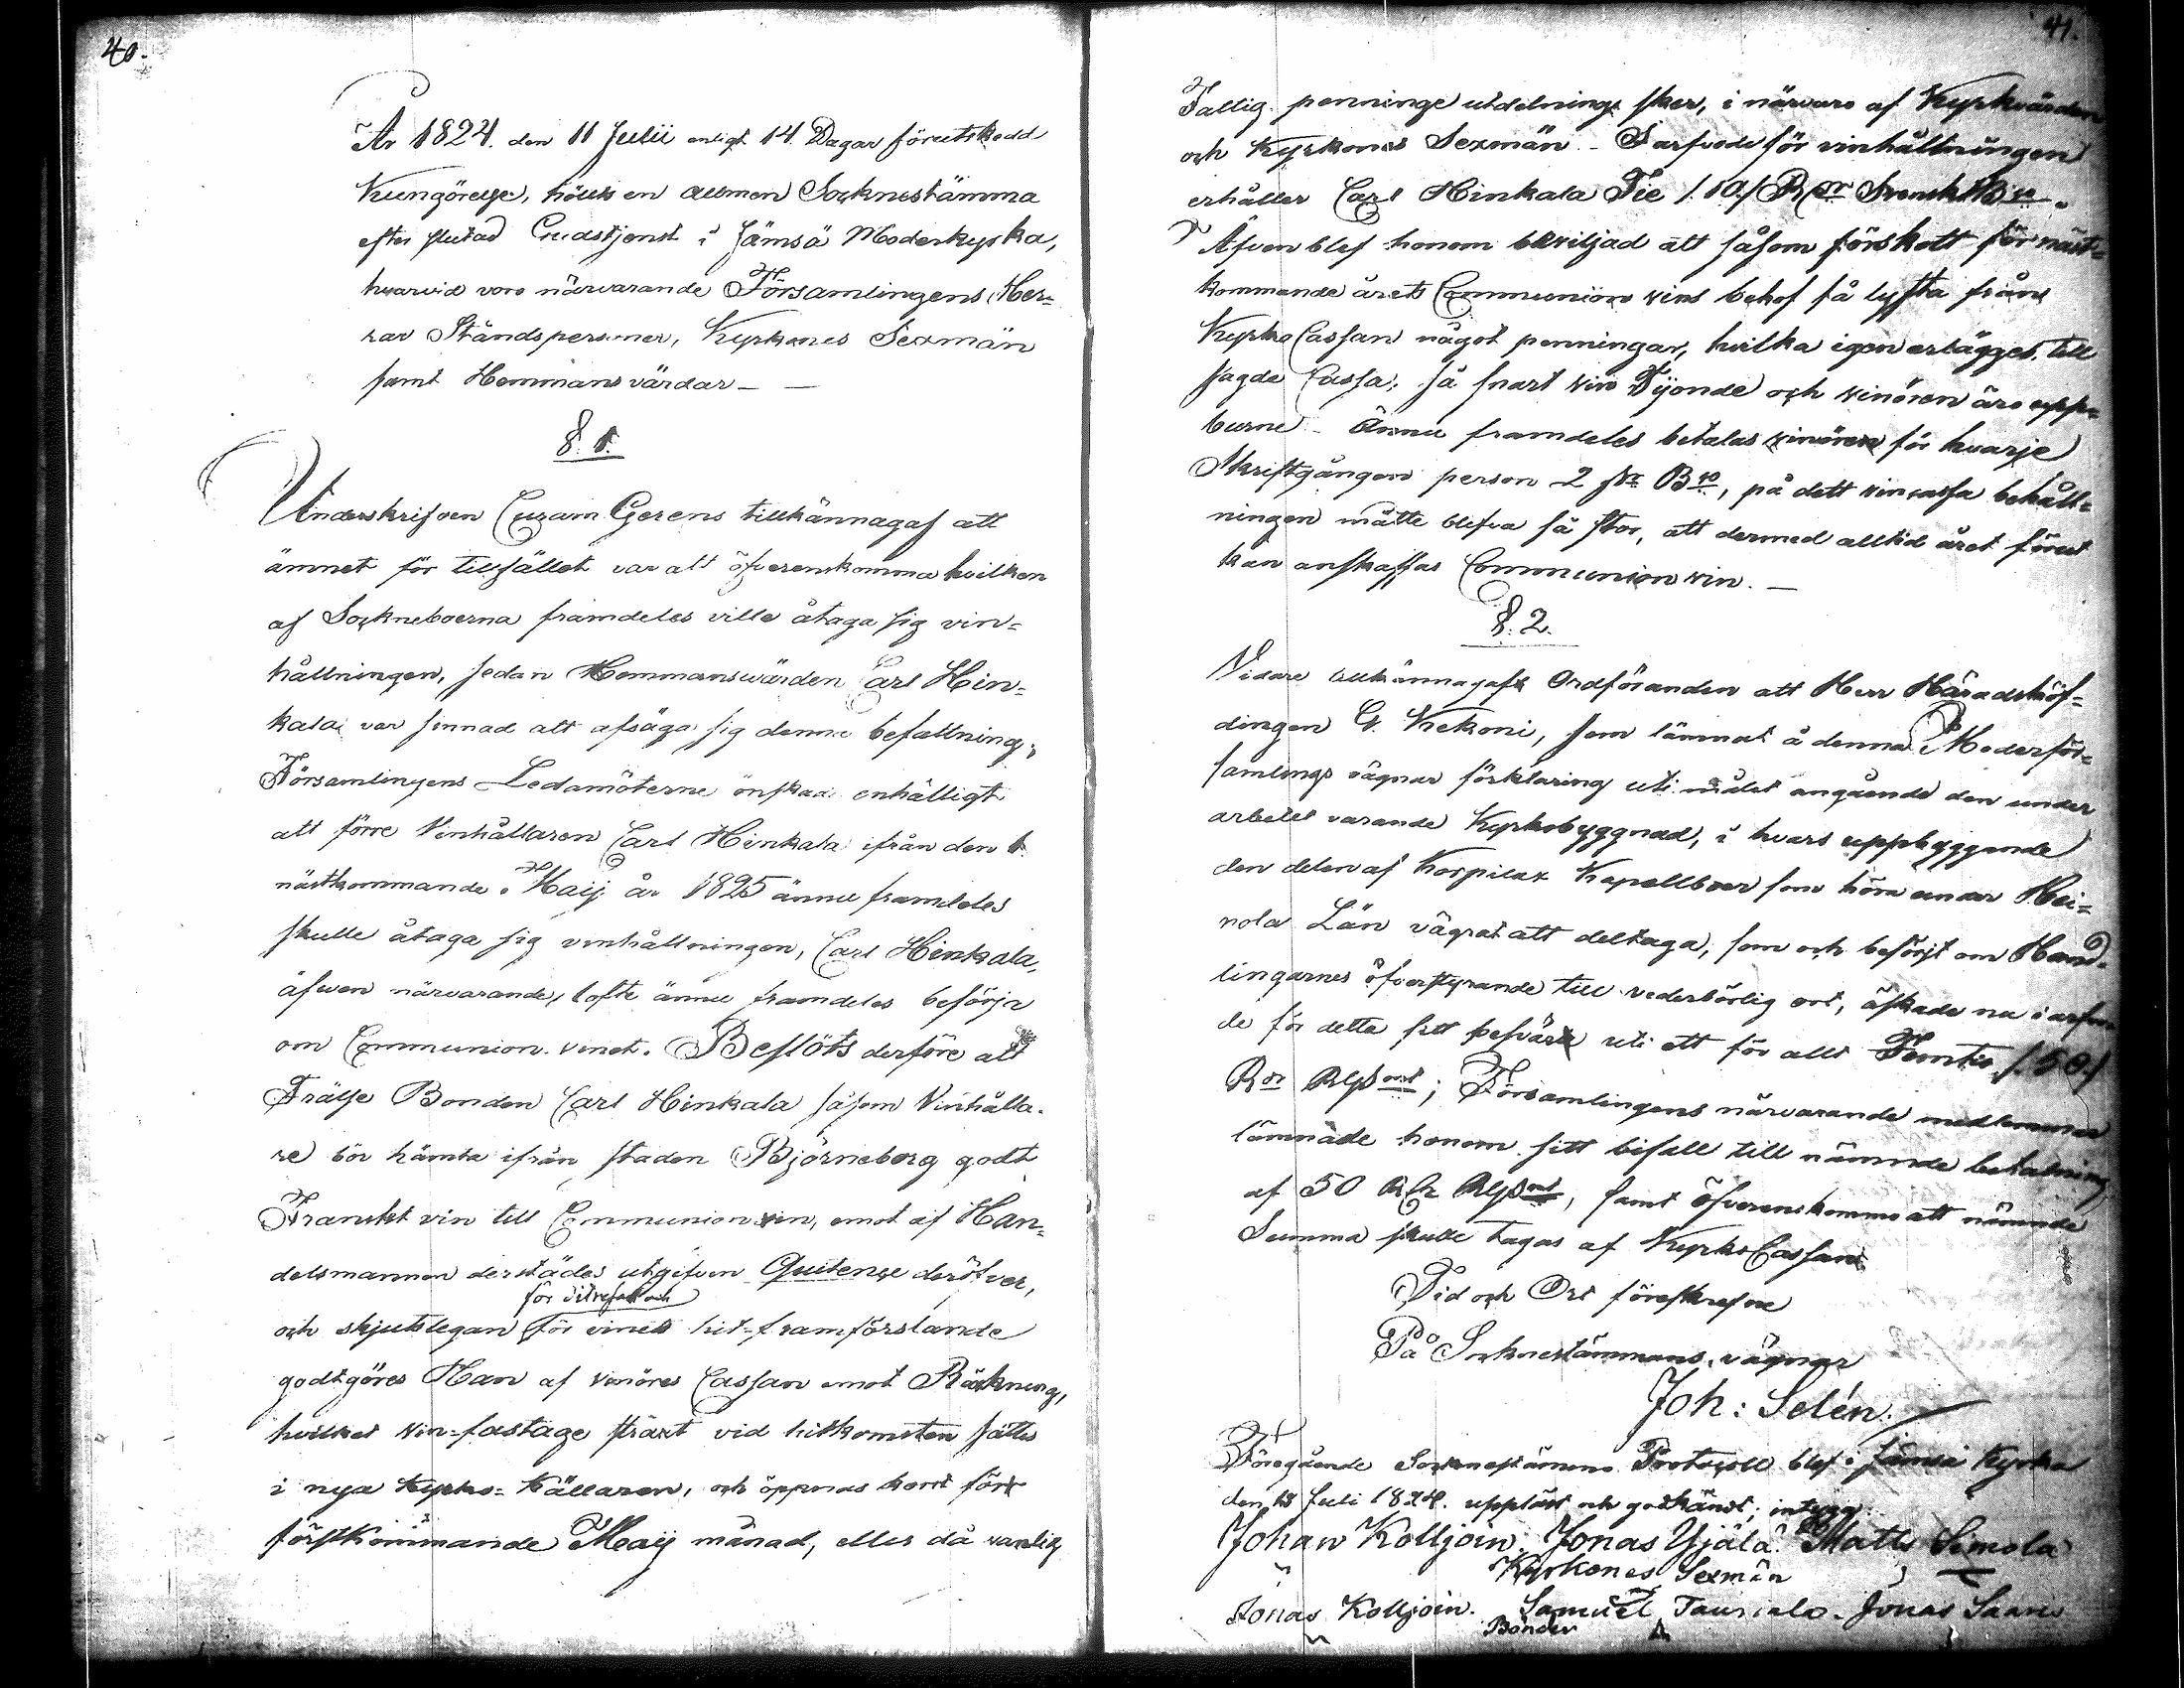 40.
År 1824. den 11 Julii enligt 14 Dagar förutskedd
Kungörelse, hölls en allmen Socknestämma
efter slutad Gudstjenst i Jämsä Moderkyrka,
hwarvid voro närvarande Församlingens Her=
rar Ståndspersoner, Kyrkones Sexmän
samt Hemmansvärdar —
§. 1.
Underskrifven Curam Gerens tillkännagaf att
ämnet för tillfället var att öfverenskomma hvilken
af Sockneboerna framdeles ville åtaga sig vin=
hållningen, sedan Hemmanswärden Carl Hin=
kala var sinnad att afsäga sig denna befattning;
Församlingens Ledamöterne önskade enhälligt
att förre Vinhållaren Carl Hinkala ifrån den 1.
nästkommande Maij år 1825 ännu framdeles
skulle åtaga sig vinhållningen, Carl Hinkala,
äfven närvarande, lofte ännu framdeles besörja
om Communion vinet. Beslöts derföre att
Frälse Bonden Carl Hinkala såsom Vinhålla=
re bör hämta ifrån staden Björneborg godt
Franskt vin till Communion vin, emot af Han=
delsmannen derstädes utgifven Quitence deröfver,
för ditresan och
och skjutslegan för vinets hit-framförslande
godtgöres Han af vinöres Cassan emot Räkning,
hvilket vin=fastage straxt vid hitkomsten sättes
i nya Kyrko=Källaren, och öppnas hvart före
förstkommande Maij månad, eller då vanlig
41.
Fattig penninge utdelninge sker, i närvaro af Kyrkvärden
och Kyrkones Sexmän. - I arfvode för vinhållningen
erhåller Carl Hinkala Tie /:10:/ Rdr Svensk Bco.
Äfven blef honom beviljad att såsom förskott för näst=
kommande årets Communions vins behof få lyfta från
Kyrko Cassan något penningar, hvilka igen erlägges till
sagde Cassa, så snart vin Tijonde och vinören äro upp=
burne - Ännu framdeles betalas vinören för hvarje
Skriftgången person 2 sk Bco, på dett vincassa behåll=
ningen måtte blifva så stor, att dermed alltid året förut
kan anskaffas Communion vin. —
§. 2.
Vidare tillkännagaf Ordföranden att Herr Häradshöf=
dingen G. Kekoni, som lämnat å denna Moderför=
samlings vägnar förklaring uti målet angående den under
arbetet varande Kyrkobyggnad, i hvars uppbyggande
den delen af Korpilax Kapellboer som höra under Hei=
nola Län vägrat att deltaga, som och besörjt om Hand=
lingarnes öfverstyrande till vederbörlig ort, äskade nu i arfvo
de för detta sitt besvär uti ett för allt Femtio /:50:/
Rdr RgSmt; Församlingens närvarande medlemmar
lämnade honom sitt bifall till nämnde betalning
af 50 Rdr RgSmt, samt öfverenskommo att nämnde
Summa skulle tagas af Kyrko Cassan.
Tid och Ort föreskrefne
På Socknestämmans vägnar
Joh: Selén.
Föregående Socknestämmo Protocoll blef i Jämsä Kyrka
den 18 Juli 1824. uppläst och godkändt; intyga:
Johan Kolljoin. Jonas Yjälä. Matts Simola
Kyrkones Sexmän
Jonas Kolljoin. Samuel Jonas Saares
Bönder